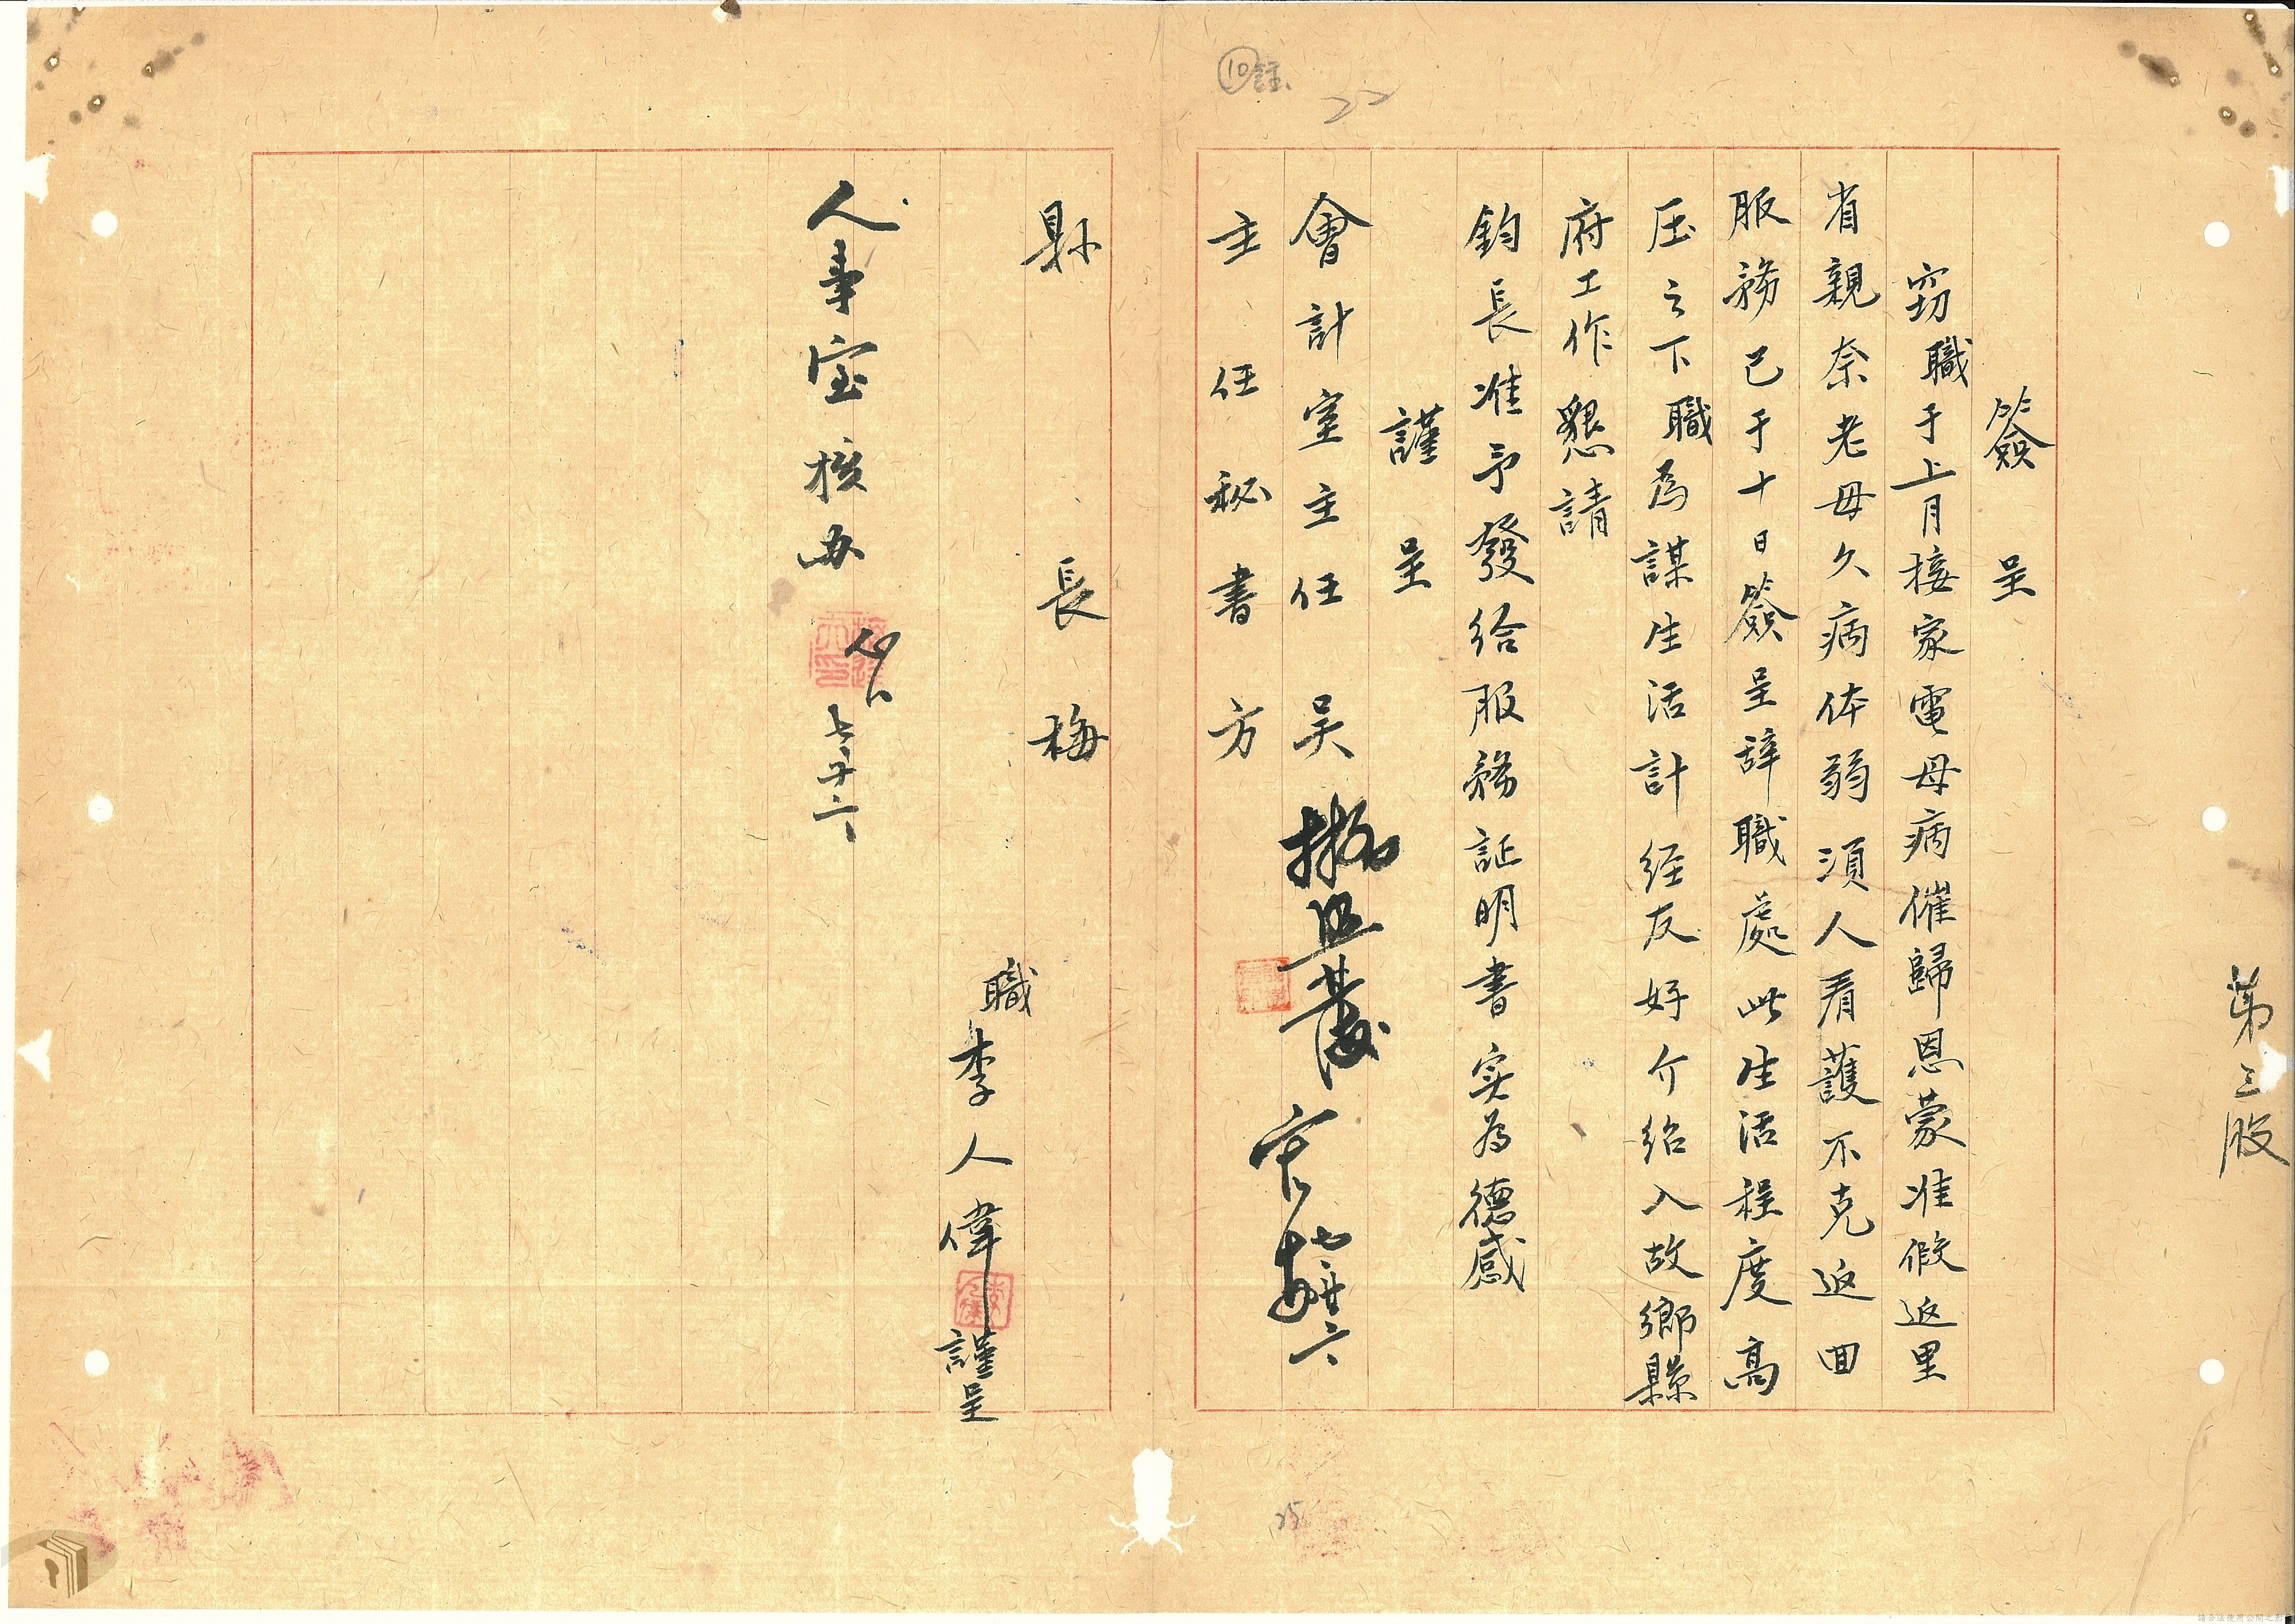 第三股
簽呈
窃職于上月接家電母病催歸恩蒙准假返里
省親奈老母久病体弱須人看護不克返回
服務已于十日簽呈辞職處此生活程度高
压之下職為謀生活計经友好介绍入故鄉縣
府工作懇請
鈞長准予發给服務証明書实為德感
謹呈
會計室主任吴
主任秘書方
縣長梅
職李人偉謹呈
人事室核办
七、廿六
七、廿六
⑩註
22
25